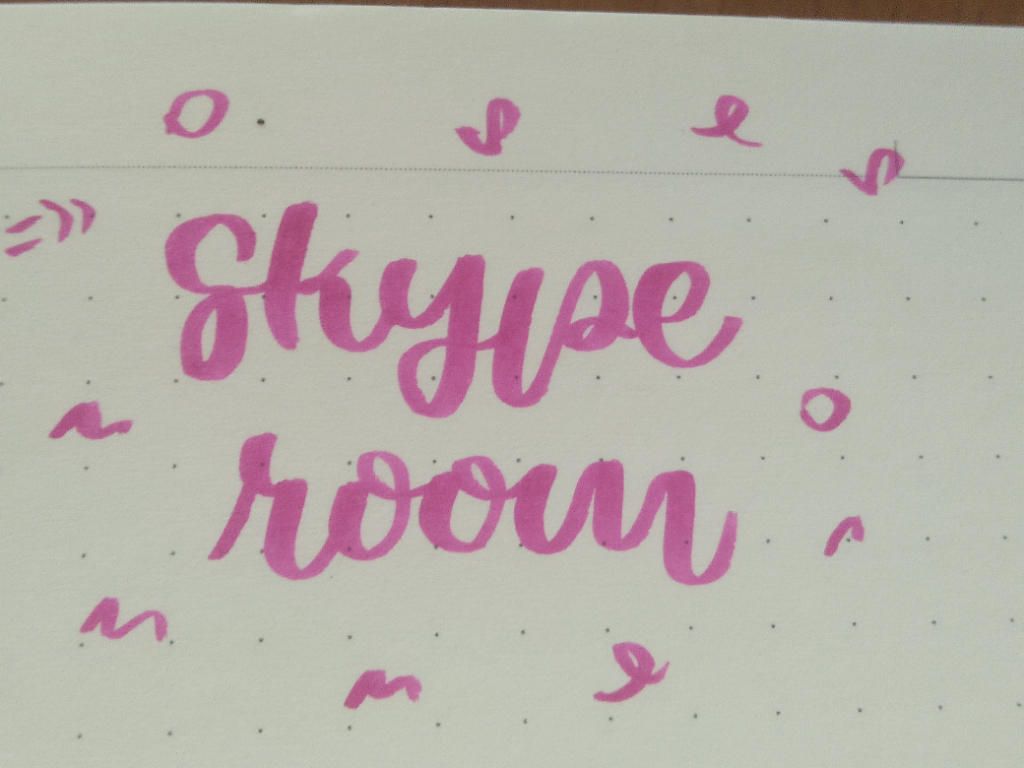 Skype
room